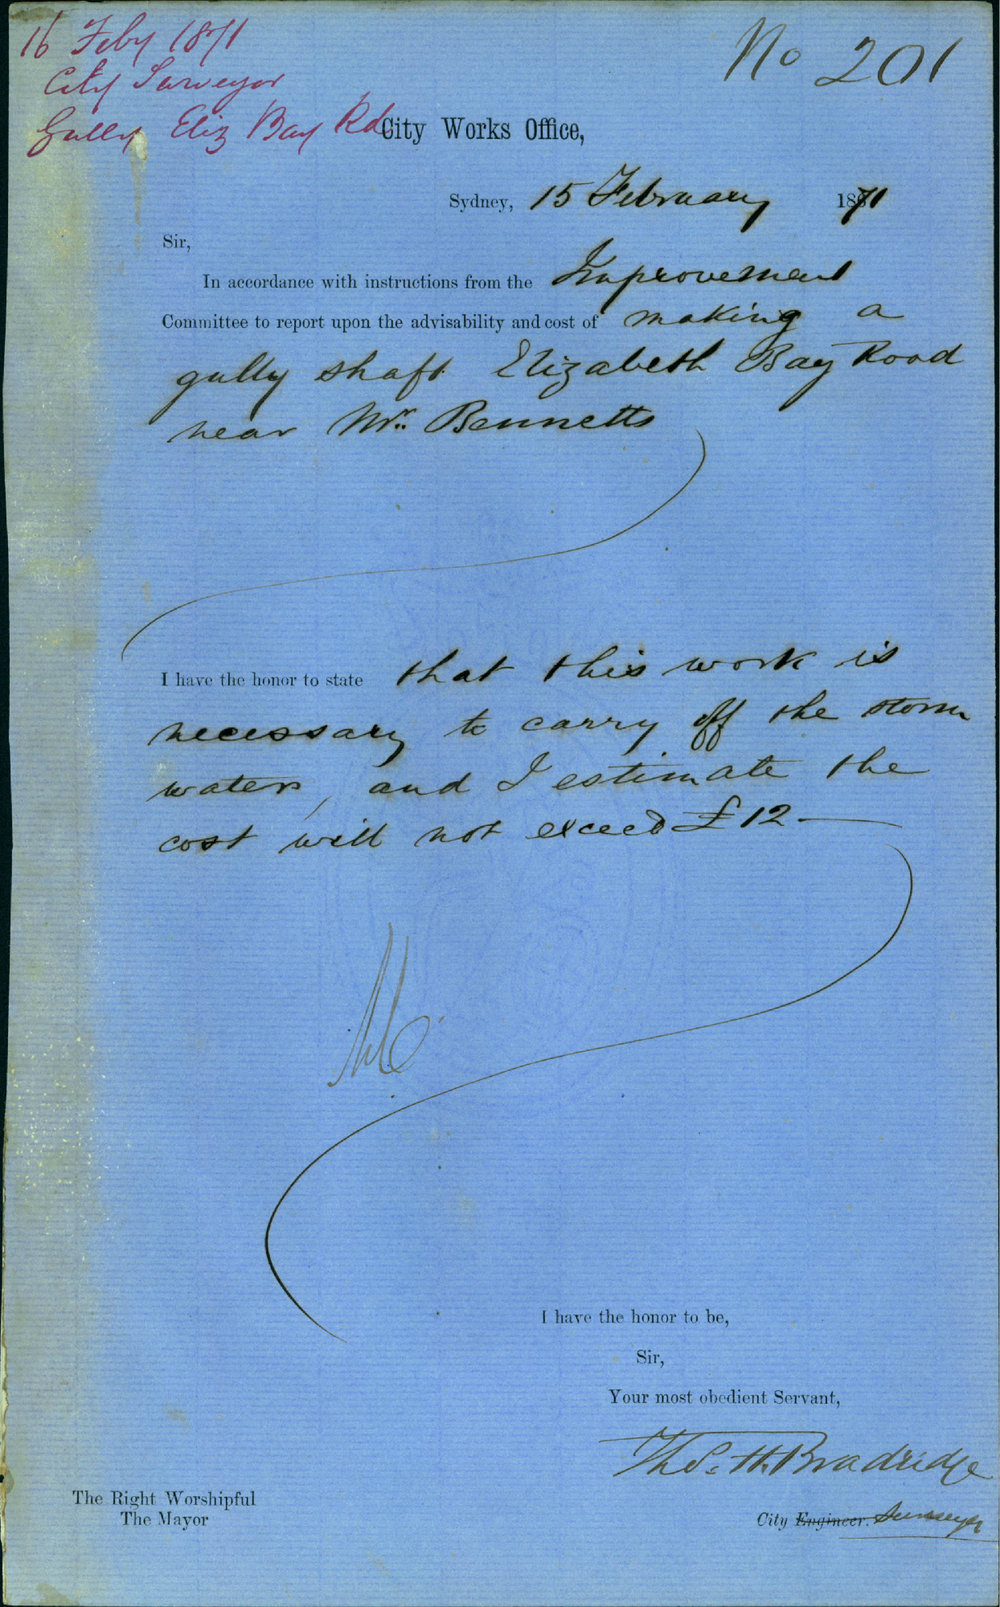 16 Feby 1871
City Surveyor
Gully Eliz Bay Rd
No 201
City Works Office,
Sydney, 15 February 1871
Sir,
In accordance with instructions from the Improvement
Committee to report upon the advisability and cost of making a
gully shaft Elizabeth Bay Road
near Mr. Bennetts
I have the honor to state that this work is
necessary to carry off the storm
waters, and I estimate the
cost will not exceed £12
I have the honor to be,
Sir,
Your most obedient Servant,
Thos. H. Bradridge
The Right Worshipful
The Mayor
City Engineer. Surveyor